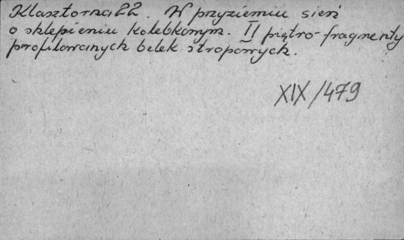 Klasztorna 22. W przyziemiu sień
o sklepieniu kolebkowym. II piętro - fragmenty
profilowanych belek stropowych.
XIX/479